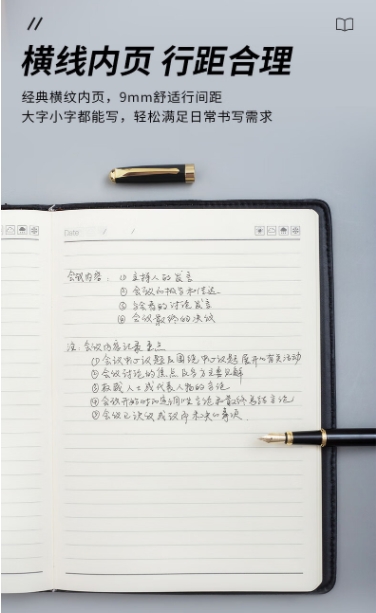 横线内页 行距合理
经典横纹内页，9mm舒适行间距
大字小字都能写，轻松满足日常书写需求
Date: / /
会议内容：① 主持人的发言
② 会议的报告和传达
③ 与会者的讨论发言
④ 会议最终的决议
注：会议内容记录重点
① 会议中心议题及围绕中心议题展开的有关活动
② 会议讨论的焦点及各方主要见解
③ 权威人士或代表人物的言论
④ 会议开始时的定调性言论和最终总结言论
⑤ 会议已决议或议而未决的事项